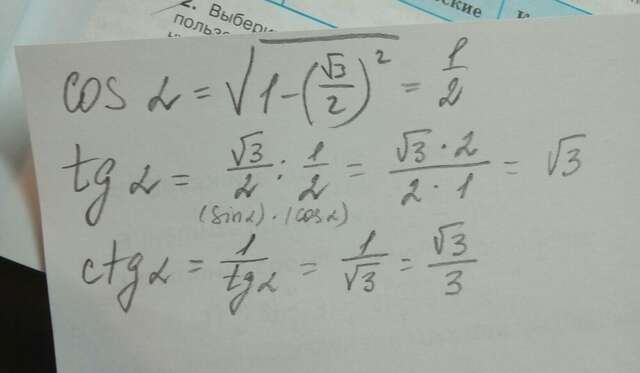 2. Выбери
пользо
cos α = √(1 - (√3/2)²) = 1/2
tg α = √3/2 : 1/2 = √3 · 2 / 2 · 1 = √3
(sin α) · (cos α)
ctg α = 1/tg α = 1/√3 = √3/3